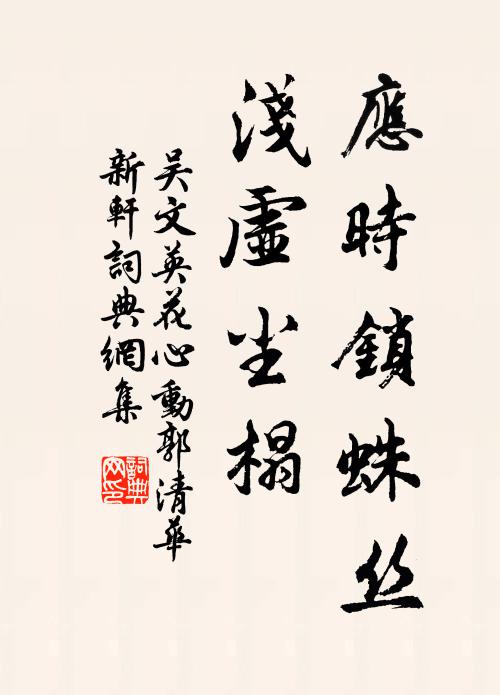 應時鎖蛛丝
淺虛尘榻
吴文英花心動郭清華
新軒詞典網集
詞典网印